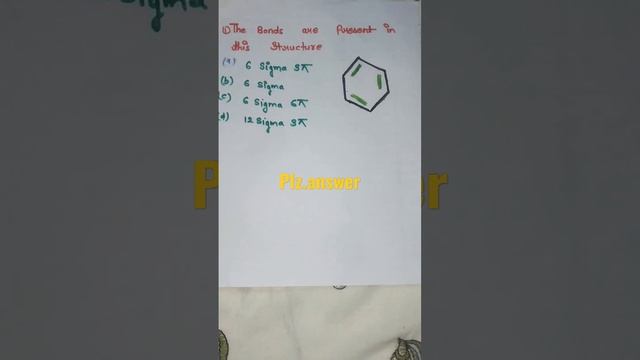 1) The Bonds are Present in
this Structure
(a) 6 Sigma 3π
(b) 6 Sigma
(c) 6 Sigma 6π
(d) 12 Sigma 3π
Plz.answer